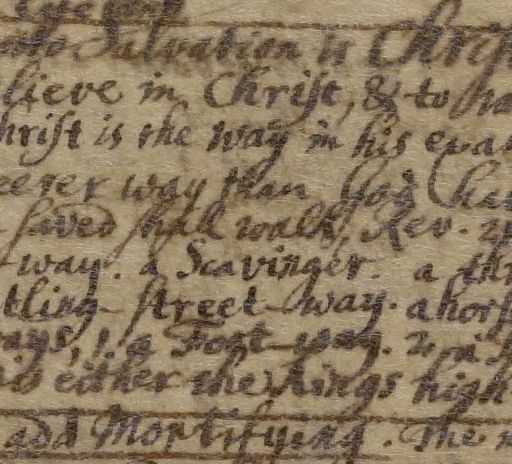 Salvation is Christ
lieve in Christ, & to
hrist is the way in his
way than God
saved shall walk, Rev.
way. a Scavinger. a
tling street way. a hors
ways, 1. a Foot way. 2
either the Kings high
add Mortifying. The